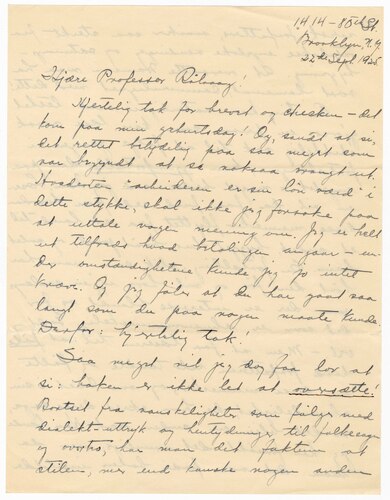 1414 - 80th St.
Brooklyn, N.Y.
22de Sept 1925
Kjære Professor Rölvaag!
Hjertelig tak for brevet og checken - det
kom paa min geburtsdag! Og, sandt at si,
det rettet betydelig paa saa meget som
var begyndt at se noksaa vrangt ut.
Hvorvidt "arbeideren er sin løn værd" i
dette stykke, skal ikke jeg forsöke paa
at uttale nogen mening om. Jeg er helt
ut tilfreds hvad betalingen angaar - un-
der omstændighetene kunde jeg jo intet
kræve. Og jeg föler at du har gaat saa
langt som du paa nogen maate kunde.
Derfor: hjertelig tak!
Saa meget vil jeg dog faa lov at
si: boken er ikke let at oversætte!
Bortset fra vanskeligheter som følger med
dialekt-uttryk og hentydninger til folkesagn
og overtro, har man det faktum at
stilen, mer end kanske nogen anden